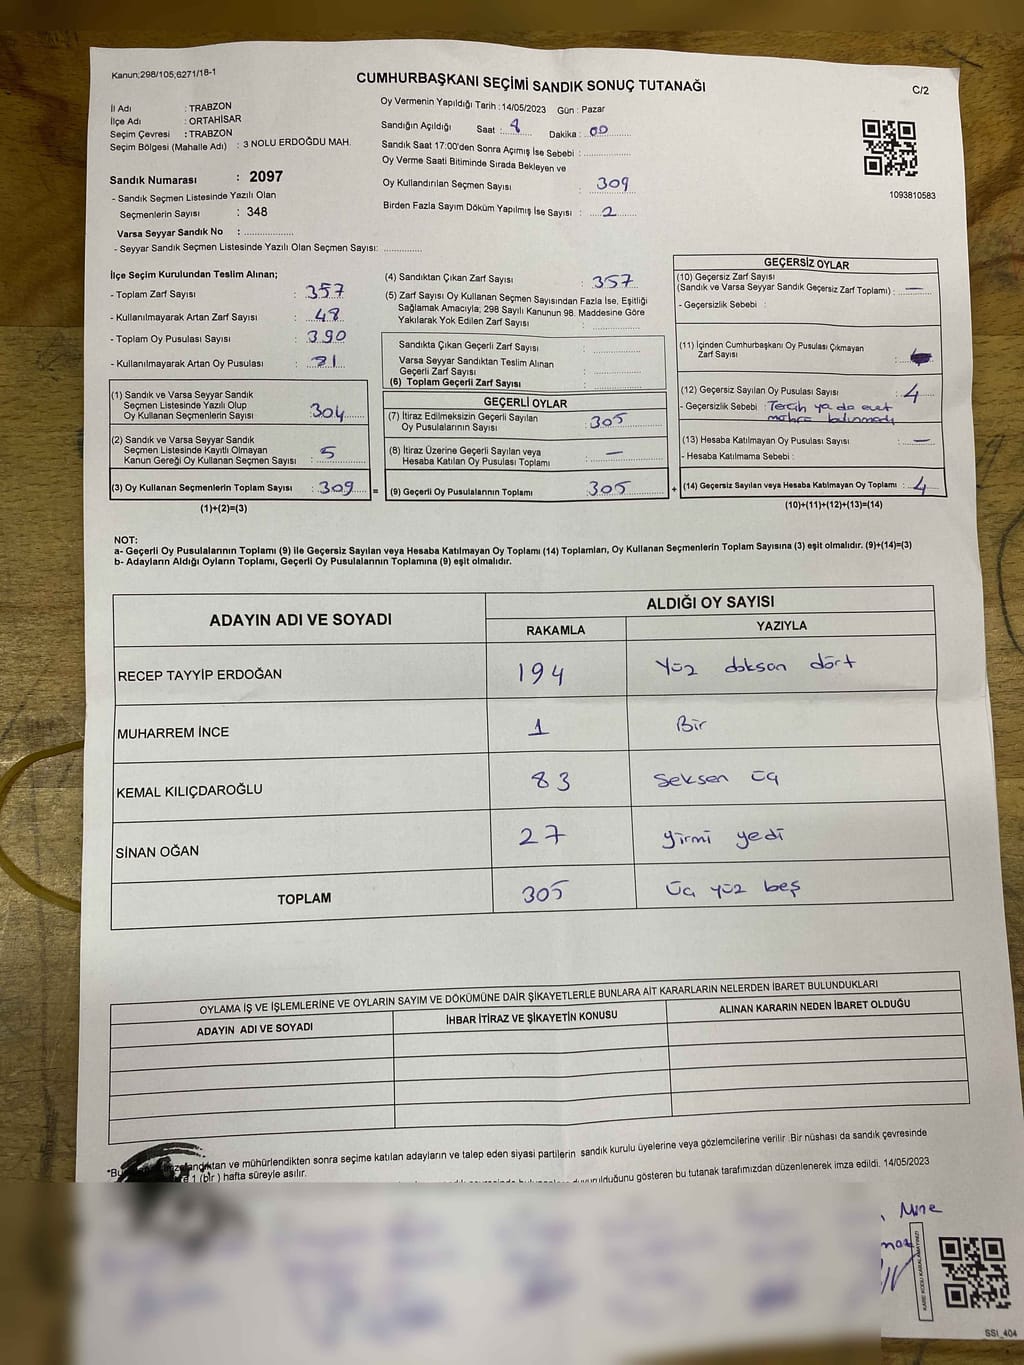 Kanun;298/105;6271/18-1
CUMHURBAŞKANI SEÇİMİ SANDIK SONUÇ TUTANAĞI
C/2
İl Adı : TRABZON
İlçe Adı : ORTAHİSAR
Seçim Çevresi : TRABZON
Seçim Bölgesi (Mahalle Adı) : 3 NOLU ERDOĞDU MAH.
Sandık Numarası : 2097
- Sandık Seçmen Listesinde Yazılı Olan
Seçmenlerin Sayısı : 348
Varsa Seyyar Sandık No : ..................
- Seyyar Sandık Seçmen Listesinde Yazılı Olan Seçmen Sayısı: ..............
Oy Vermenin Yapıldığı Tarih : 14/05/2023 Gün : Pazar
Sandığın Açıldığı Saat : 8 Dakika : 00
Sandık Saat 17:00'den Sonra Açımış İse Sebebi : ..................
Oy Verme Saati Bitiminde Sırada Bekleyen ve
Oy Kullandırılan Seçmen Sayısı : 309
Birden Fazla Sayım Döküm Yapılmış İse Sayısı : 2
1093810583
İlçe Seçim Kurulundan Teslim Alınan;
- Toplam Zarf Sayısı : 357
- Kullanılmayarak Artan Zarf Sayısı : 48
- Toplam Oy Pusulası Sayısı : 390
- Kullanılmayarak Artan Oy Pusulası : 81
(1) Sandık ve Varsa Seyyar Sandık
Seçmen Listesinde Yazılı Olup
Oy Kullanan Seçmenlerin Sayısı : 304
(2) Sandık ve Varsa Seyyar Sandık
Seçmen Listesinde Kayıtlı Olmayan
Kanun Gereği Oy Kullanan Seçmen Sayısı : 5
(3) Oy Kullanan Seçmenlerin Toplam Sayısı : 309 =
(1)+(2)=(3)
(4) Sandıktan Çıkan Zarf Sayısı : 357
(5) Zarf Sayısı Oy Kullanan Seçmen Sayısından Fazla İse, Eşitliği
Sağlamak Amacıyla; 298 Sayılı Kanunun 98. Maddesine Göre
Yakılarak Yok Edilen Zarf Sayısı : ..................
Sandıkta Çıkan Geçerli Zarf Sayısı : ..................
Varsa Seyyar Sandıktan Teslim Alınan
Geçerli Zarf Sayısı : ..................
(6) Toplam Geçerli Zarf Sayısı : ..................
GEÇERLİ OYLAR
(7) İtiraz Edilmeksizin Geçerli Sayılan
Oy Pusulalarının Sayısı : 305
(8) İtiraz Üzerine Geçerli Sayılan veya
Hesaba Katılan Oy Pusulası Toplamı : —
(9) Geçerli Oy Pusulalarının Toplamı : 305 +
GEÇERSİZ OYLAR
(10) Geçersiz Zarf Sayısı
(Sandık ve Varsa Seyyar Sandık Geçersiz Zarf Toplamı) : —
- Geçersizlik Sebebi :
(11) İçinden Cumhurbaşkanı Oy Pusulası Çıkmayan
Zarf Sayısı :
(12) Geçersiz Sayılan Oy Pusulası Sayısı : 4
- Geçersizlik Sebebi : Tercih ya da evet
mührü bulunmadı
(13) Hesaba Katılmayan Oy Pusulası Sayısı : —
- Hesaba Katılmama Sebebi :
(14) Geçersiz Sayılan veya Hesaba Katılmayan Oy Toplamı : 4
(10)+(11)+(12)+(13)=(14)
NOT:
a- Geçerli Oy Pusulalarının Toplamı (9) ile Geçersiz Sayılan veya Hesaba Katılmayan Oy Toplamı (14) Toplamları, Oy Kullanan Seçmenlerin Toplam Sayısına (3) eşit olmalıdır. (9)+(14)=(3)
b- Adayların Aldığı Oyların Toplamı, Geçerli Oy Pusulalarının Toplamına (9) eşit olmalıdır.
ADAYIN ADI VE SOYADI
ALDIĞI OY SAYISI
RAKAMLA YAZIYLA
RECEP TAYYİP ERDOĞAN 194 Yüz doksan dört
MUHARREM İNCE 1 Bir
KEMAL KILIÇDAROĞLU 83 Seksen üç
SİNAN OĞAN 27 yirmi yedi
TOPLAM 305 Üç yüz beş
OYLAMA İŞ VE İŞLEMLERİNE VE OYLARIN SAYIM VE DÖKÜMÜNE DAİR ŞİKAYETLERLE BUNLARA AİT KARARLARIN NELERDEN İBARET BULUNDUKLARI
ADAYIN ADI VE SOYADI İHBAR İTİRAZ VE ŞİKAYETİN KONUSU ALINAN KARARIN NEDEN İBARET OLDUĞU
*Bu andıktan ve mühürlendikten sonra seçime katılan adayların ve talep eden siyasi partilerin sandık kurulu üyelerine veya gözlemcilerine verilir .Bir nüshası da sandık çevresinde
1 (bir ) hafta süreyle asılır.
duyurulduğunu gösteren bu tutanak tarafımızdan düzenlenerek imza edildi. 14/05/2023
Mine
KARE KODU KARALAMAYINIZ!
SSI_404